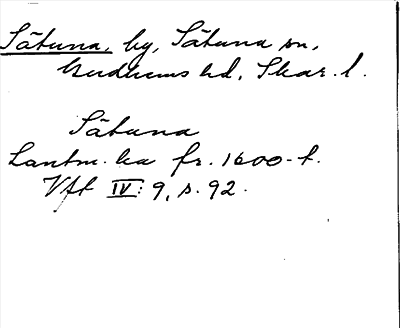 Sätuna, by, Sätuna sn,
Gudhems hd, Skar. l.
Sätuna
Lantm. ka fr. 1600-t.
Vft IV: 9, s. 92.